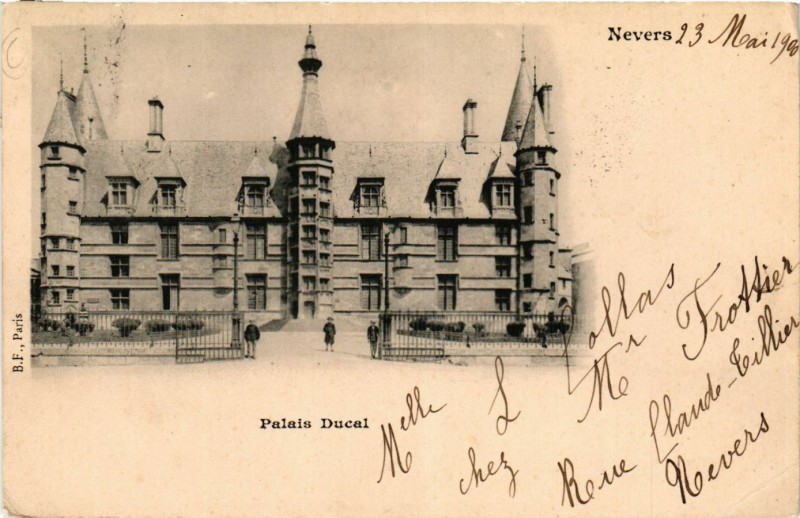 Nevers 23 Mai 1900
B.F., Paris
Palais Ducal
Melle L Collas
chez Mr Frottier
Rue Claude-Tillier
Nevers